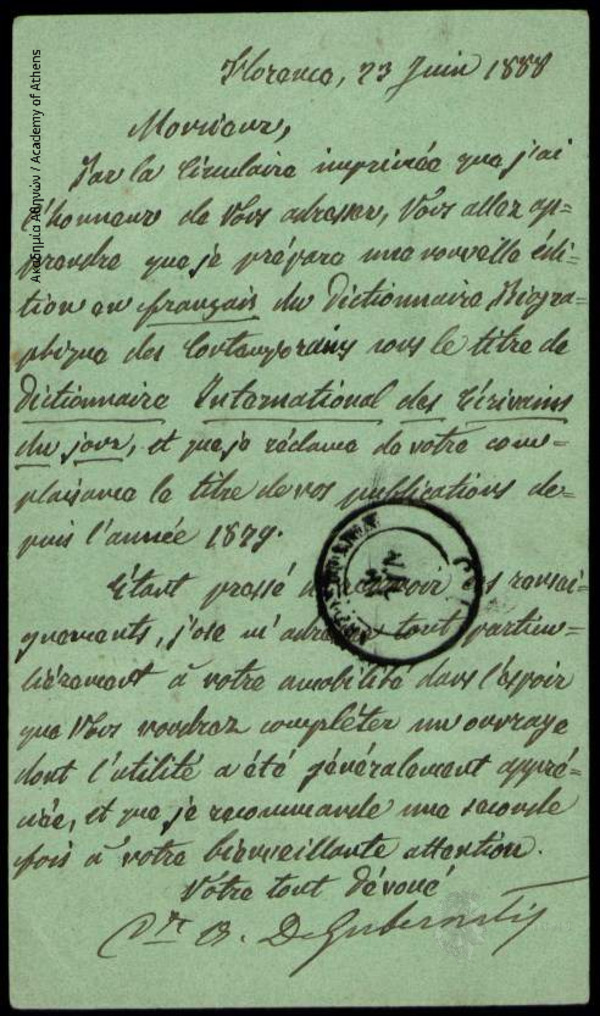 Ακαδημία Αθηνών / Academy of Athens
Florence, 23 Juin 1888
Monsieur,
Par la Circulaire imprimée que j'ai
l'honneur de Vous adresser, Vous allez ap=
prendre que je prépare une nouvelle édi=
tion en français du Dictionnaire Biogra=
phique des Contemporains sous le titre de
Dictionnaire International des Écrivains
du jour, et que je réclame de votre com=
plaisance le titre de vos publications de=
puis l'année 1879.
Étant pressé de recevoir ces rensei=
gnements, j'ose m'adresser tout particu=
lièrement à votre amabilité dans l'espoir
que Vous voudrez compléter un ouvrage
dont l'utilité a été généralement appré=
ciée, et que je recommande une seconde
fois à votre bienveillante attention.
Votre tout dévoué
Cte A. De Gubernatis